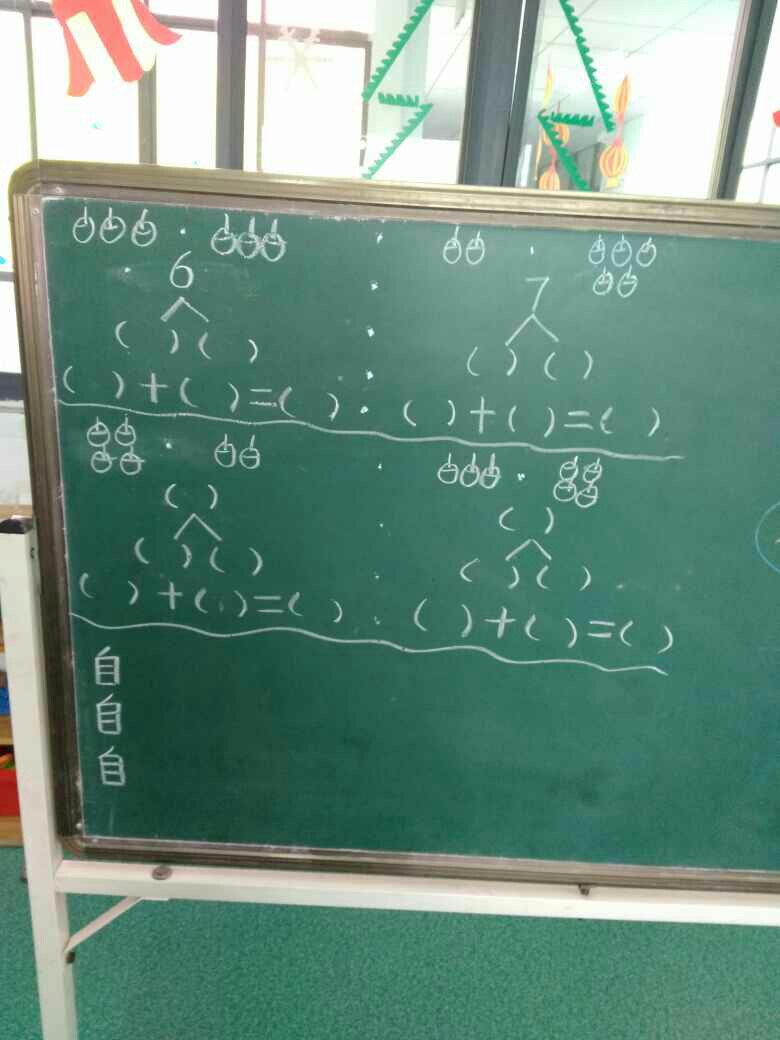 6
( ) ( )
( ) + ( ) = ( )
7
( ) ( )
( ) + ( ) = ( )
( )
( ) ( )
( ) + ( ) = ( )
( )
( ) ( )
( ) + ( ) = ( )
自
自
自